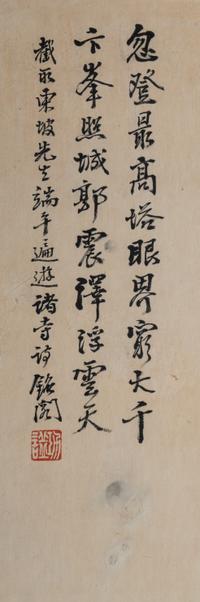 忽登最高塔眼界窮大千
卞峯照城郭震澤浮雲天
截取東坡先生端午遍遊諸寺詩銘閣